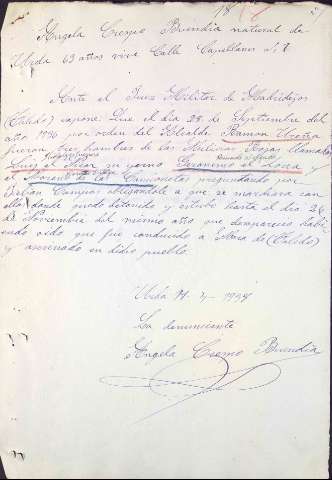 18
Angela Crespo Buendia natural de
Ubeda 63 años vive Calle Capellanes nº 7
Ante el Juez Militar de Madridejos
(Toledo) expone: Que el dia 28 de Septiembre del
año 1936 por orden del Alcalde Ramon Ureña
fueron tres hombres de las Milicias Rojas llamados
Luis el Chica su yerno
y
el Camionetas preguntando por
Campos obligandole a que se marchara con
ellos donde quedo detenido y estubo hasta el dia 26
de Noviembre del mismo año que desaparecio habi
endo oido que fue conducido a (Toledo)
y asesinado en dicho pueblo.
Ubeda
La denunciante
Angela Crespo Buendia